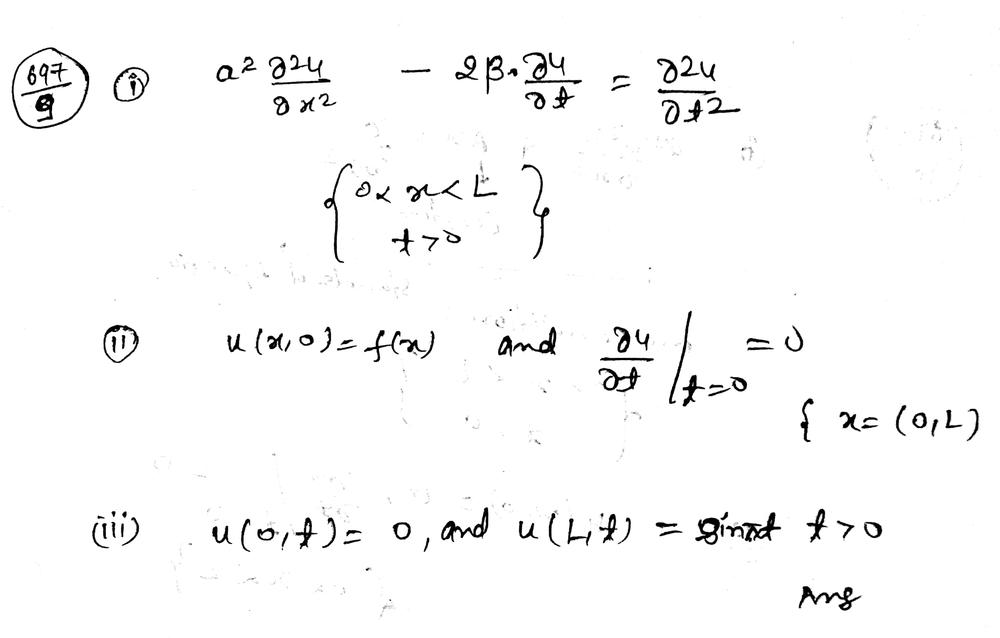 697/9 (i) a² ∂²u/∂x² − 2β·∂u/∂t = ∂²u/∂t²
{ 0 < x < L
t > 0 }
(ii) u(x,0) = f(x) and ∂u/∂t |t=0 = 0
{ x = (0, L)
(iii) u(0,t) = 0, and u(L,t) = sinπt t > 0
Ans